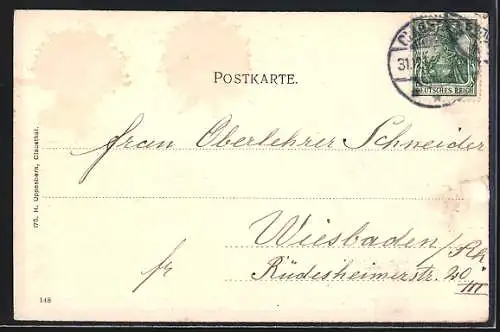 POSTKARTE.
DEUTSCHES REICH
31.12
Frau Oberlehrer Schneider
Wiesbaden / Rh
fr
Rüdesheimerstr. 20/III
175. H. Uppenborn, Clausthal.
148